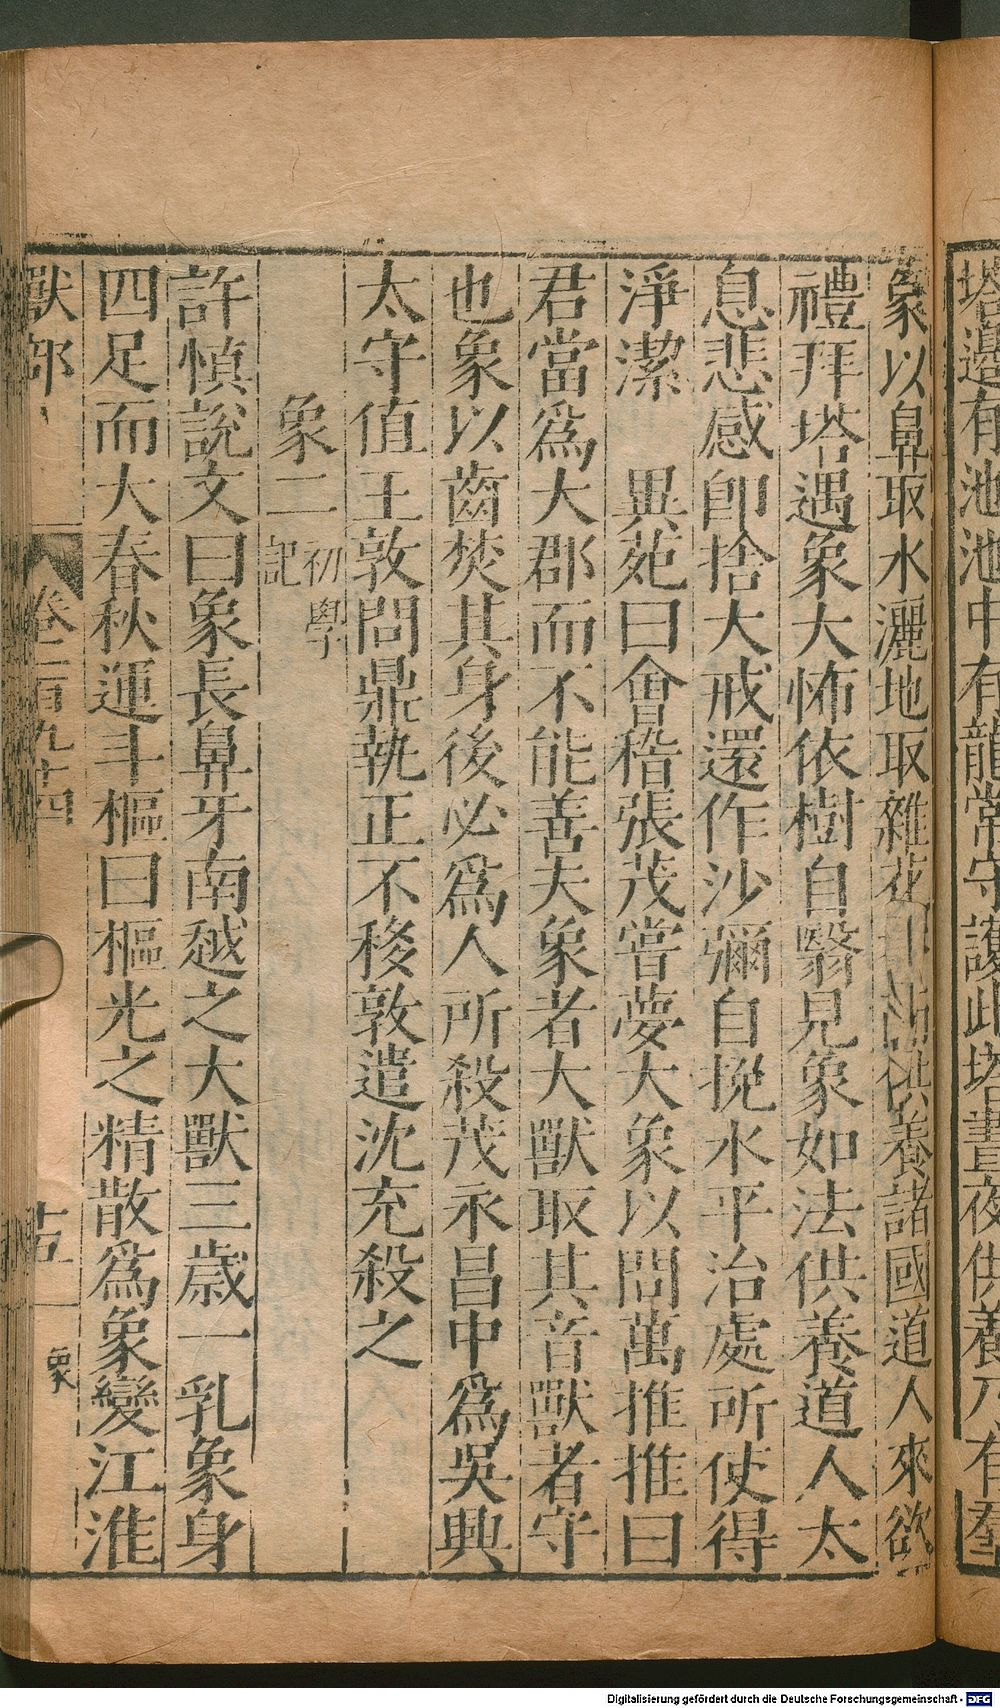 塔邊有池池中有龍常守護此塔晝夜供養乃有羣
象以鼻取水灑地取雜花供養諸國道人來欲
禮拜塔遇象大怖依樹自翳見象如法供養道人太
息悲感卽捨大戒還作沙彌自挽水平治處所使得
淨潔 異苑曰會稽張茂嘗夢大象以問萬推推曰
君當爲大郡而不能善夫象者大獸取其音獸者守
也象以齒焚其身後必爲人所殺茂永昌中爲吳興
太守值王敦問鼎執正不移敦遣沈充殺之
象二 初學記
許慎說文曰象長鼻牙南越之大獸三歲一乳象身
四足而大春秋運斗樞曰樞光之精散爲象變江淮
獸部 卷二百九十四 十五 象
Digitalisierung gefördert durch die Deutsche Forschungsgemeinschaft - DFG